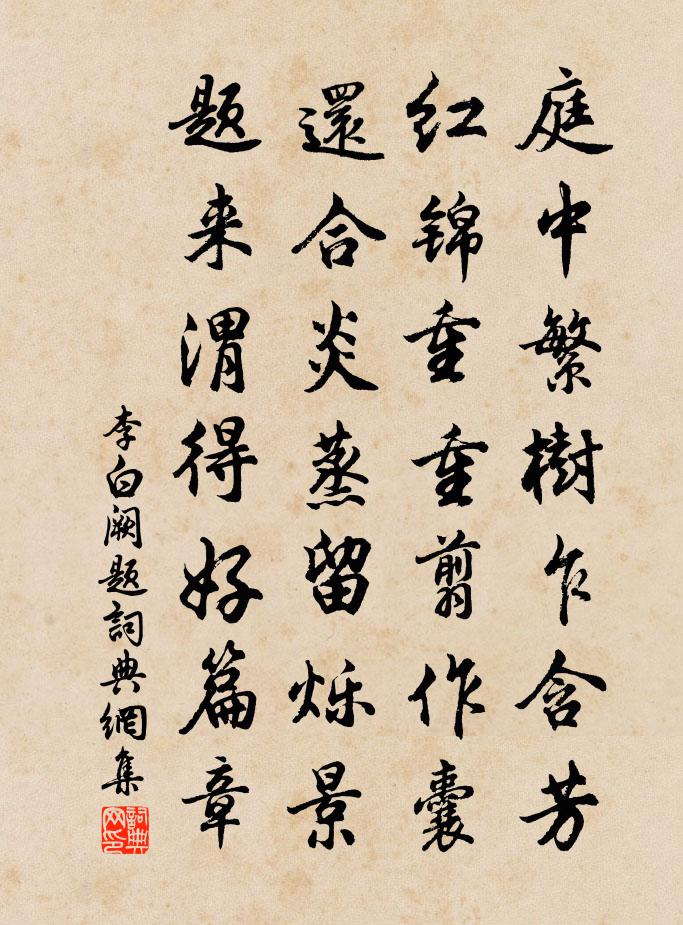 庭中繁樹乍含芳
红锦重重翦作囊
還合炎蒸留烁景
题来渭得好篇章
李白阙题詞典網集
詞典网印